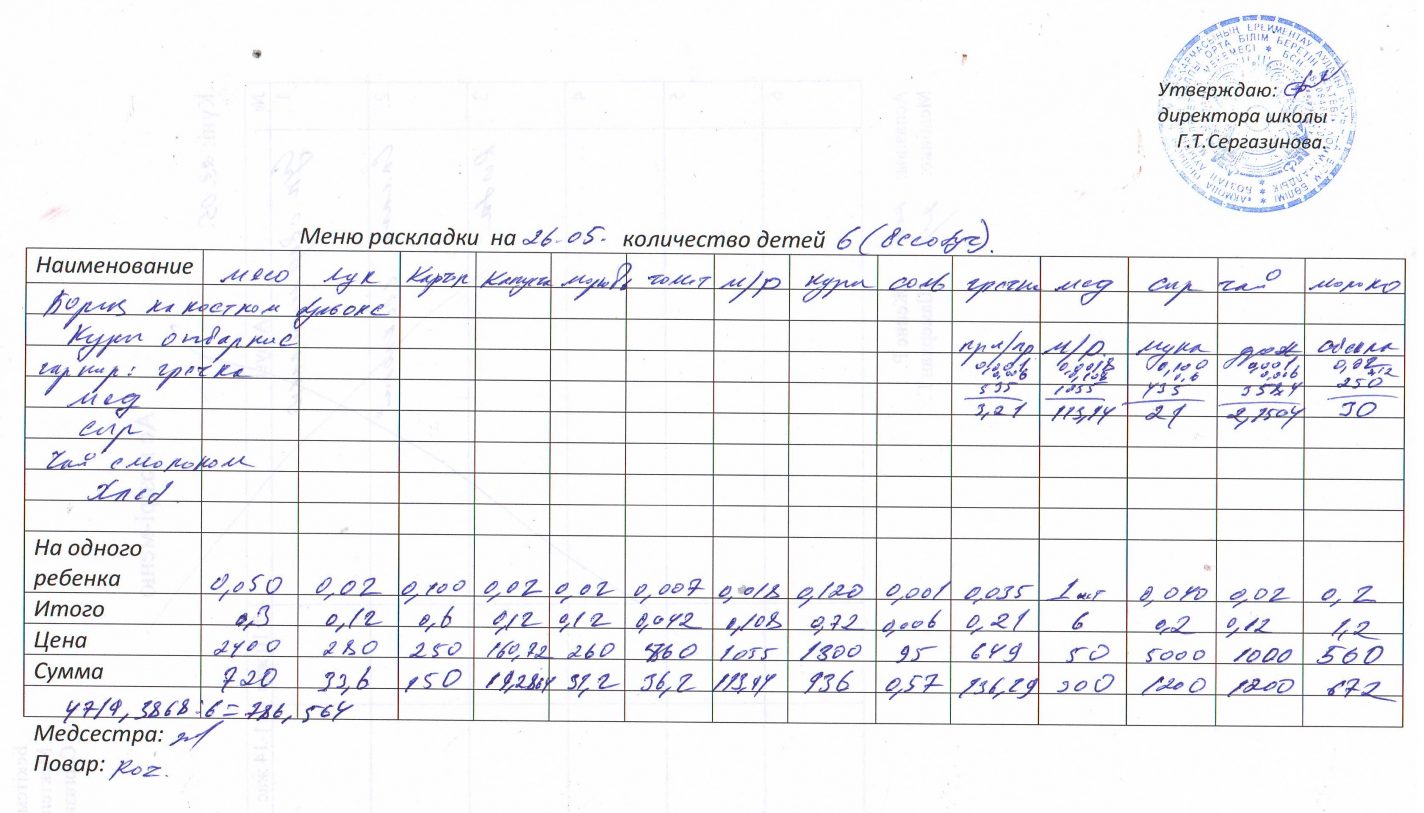 Утверждаю:
директора школы
Г.Т.Сергазинова.
Меню раскладки на 26.05. количество детей 6
Наименование мясо лук Картоп Капуста морковь томат м/р куры соль гречка мед сыр чай молоко
Борщ на костном бульоне
Куры отварные пр и/пр м/р. мука дрож обсыпка
гарнир: гречка 0,001 0,018 0,100 0,001 0,02
0,006 0,108 0,6 0,006 0,12
мед 535 1055 435 358,4 250
3,21 113,94 21 2,1504 30
сыр
Чай с молоком
Хлеб
На одного
ребенка 0,050 0,02 0,100 0,02 0,02 0,007 0,018 0,120 0,001 0,035 1 шт 0,040 0,02 0,2
Итого 0,3 0,12 0,6 0,12 0,12 0,042 0,108 0,72 0,006 0,21 6 0,2 0,12 1,2
Цена 2400 280 250 160,72 260 860 1055 1300 95 649 50 5000 1000 560
Сумма 720 33,6 150 19,2864 31,2 36,2 113,94 936 0,57 136,29 300 1200 1200 672
4719,3868:6=786,564
Медсестра:
Повар: